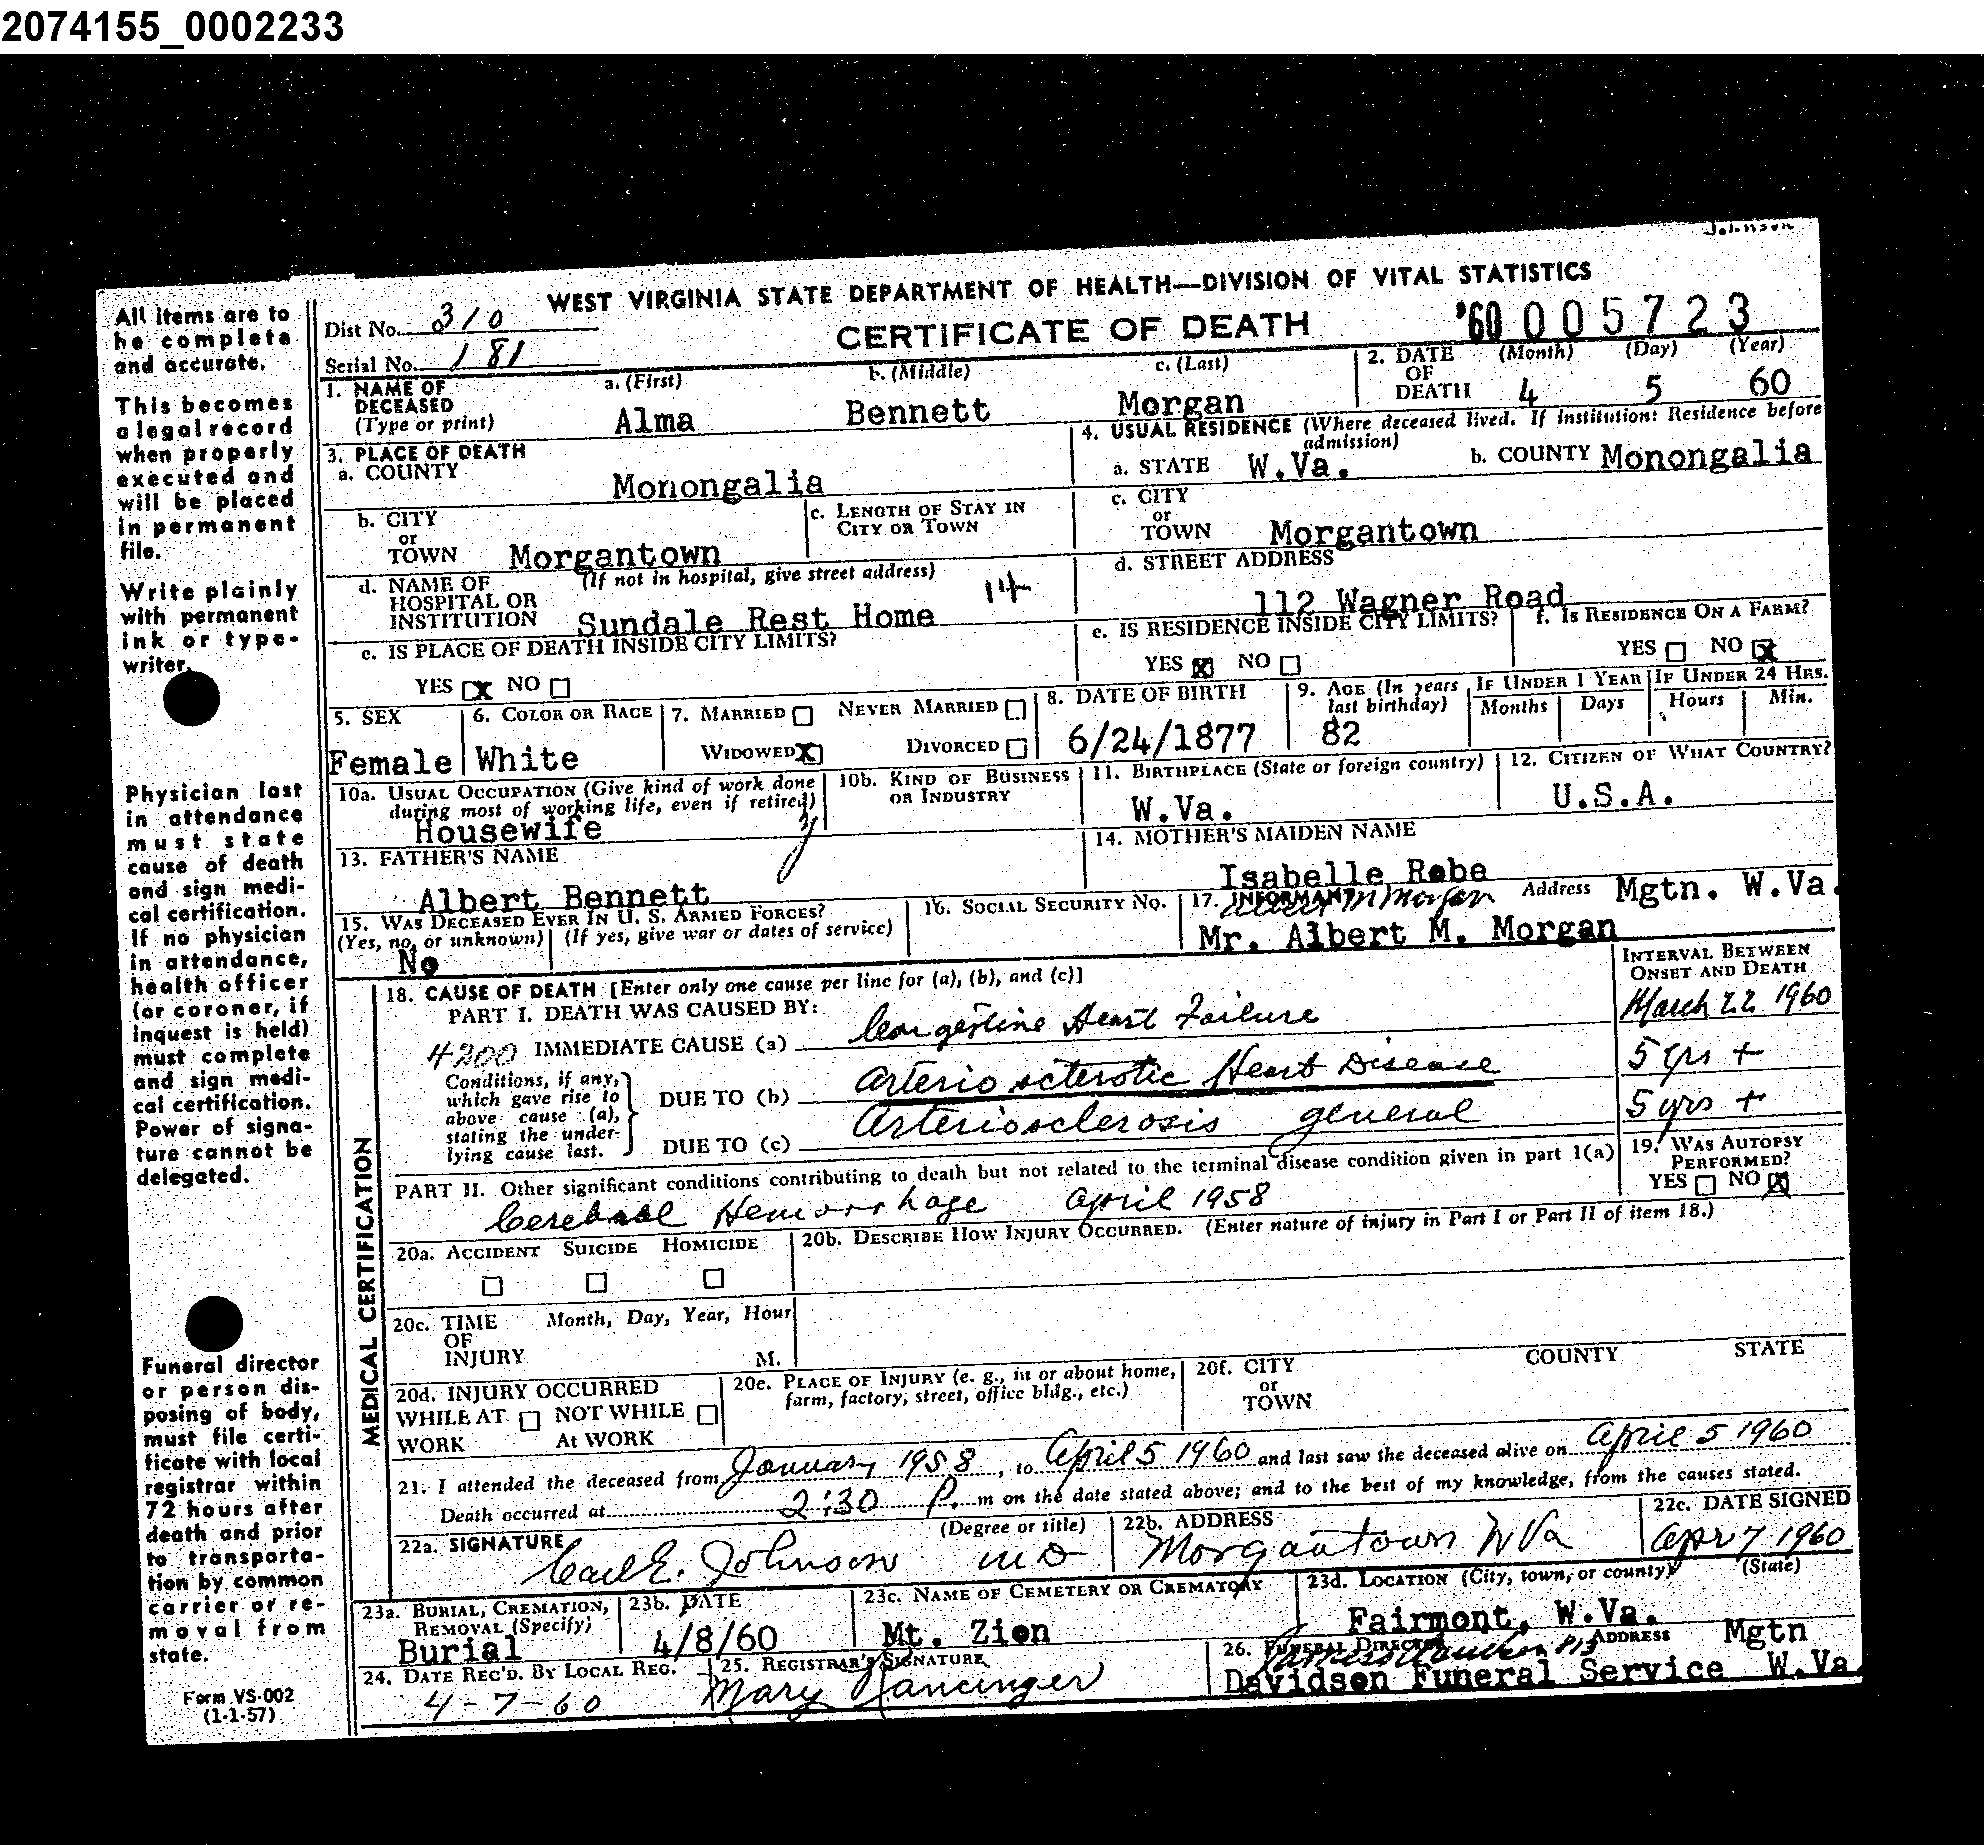 2074155_0002233
WEST VIRGINIA STATE DEPARTMENT OF HEALTH—DIVISION OF VITAL STATISTICS
CERTIFICATE OF DEATH
'60 005723
Dist No. 310
Serial No. 181
All items are to
be complete
and accurate.
This becomes
a legal record
when properly
executed and
will be placed
in permanent
file.
Write plainly
with permanent
ink or type-
writer.
Physician last
in attendance
must state
cause of death
and sign medi-
cal certification.
If no physician
in attendance,
health officer
(or coroner, if
inquest is held)
must complete
and sign medi-
cal certification.
Power of signa-
ture cannot be
delegated.
Funeral director
or person dis-
posing of body,
must file certi-
ficate with local
registrar within
72 hours after
death and prior
to transporta-
tion by common
carrier or re-
moval from
state.
Form VS-002
(1-1-57)
1. NAME OF DECEASED (Type or print) a. (First) Alma b. (Middle) Bennett c. (Last) Morgan
2. DATE OF DEATH (Month) 4 (Day) 5 (Year) 60
3. PLACE OF DEATH
a. COUNTY Monongalia
b. CITY or TOWN Morgantown
c. LENGTH OF STAY IN CITY OR TOWN
d. NAME OF HOSPITAL OR INSTITUTION (If not in hospital, give street address) Sundale Rest Home 14
e. IS PLACE OF DEATH INSIDE CITY LIMITS?
YES X NO
4. USUAL RESIDENCE (Where deceased lived. If institution: Residence before admission)
a. STATE W.Va. b. COUNTY Monongalia
c. CITY or TOWN Morgantown
d. STREET ADDRESS
112 Wagner Road
e. IS RESIDENCE INSIDE CITY LIMITS?
YES X NO
f. IS RESIDENCE ON A FARM?
YES NO X
5. SEX Female
6. COLOR OR RACE White
7. MARRIED NEVER MARRIED
WIDOWED X DIVORCED
8. DATE OF BIRTH 6/24/1877
9. AGE (In years last birthday) 82
IF UNDER 1 YEAR Months Days
IF UNDER 24 HRS. Hours Min.
10a. USUAL OCCUPATION (Give kind of work done during most of working life, even if retired)
Housewife
10b. KIND OF BUSINESS OR INDUSTRY
11. BIRTHPLACE (State or foreign country) W.Va.
12. CITIZEN OF WHAT COUNTRY? U.S.A.
13. FATHER'S NAME
Albert Bennett
14. MOTHER'S MAIDEN NAME
Isabelle Robe
15. WAS DECEASED EVER IN U. S. ARMED FORCES?
(Yes, no, or unknown) (If yes, give war or dates of service)
No
16. SOCIAL SECURITY NO.
17. INFORMANT Albert M Morgan Address Mgtn. W.Va.
Mr. Albert M. Morgan
MEDICAL CERTIFICATION
18. CAUSE OF DEATH [Enter only one cause per line for (a), (b), and (c)]
INTERVAL BETWEEN ONSET AND DEATH
PART I. DEATH WAS CAUSED BY:
4200 IMMEDIATE CAUSE (a) Congestive Heart Failure March 22 1960
Conditions, if any, which gave rise to above cause (a), stating the under-lying cause last.
DUE TO (b) Arteriosclerotic Heart Disease 5 yrs +
DUE TO (c) Arteriosclerosis general 5 yrs +
PART II. Other significant conditions contributing to death but not related to the terminal disease condition given in part 1(a)
Cerebral Hemorrhage April 1958
19. WAS AUTOPSY PERFORMED?
YES NO X
20a. ACCIDENT SUICIDE HOMICIDE
20b. DESCRIBE HOW INJURY OCCURRED. (Enter nature of injury in Part I or Part II of item 18.)
20c. TIME OF INJURY Month, Day, Year, Hour M.
20d. INJURY OCCURRED
WHILE AT WORK NOT WHILE At WORK
20e. PLACE OF INJURY (e. g., in or about home, farm, factory, street, office bldg., etc.)
20f. CITY or TOWN COUNTY STATE
21. I attended the deceased from January 1958, to April 5 1960 and last saw the deceased alive on April 5 1960
Death occurred at 2:30 P. m on the date stated above; and to the best of my knowledge, from the causes stated.
22a. SIGNATURE (Degree or title) Carl E. Johnson MD
22b. ADDRESS Morgantown W Va
22c. DATE SIGNED Apr 7 1960
23a. BURIAL, CREMATION, REMOVAL (Specify) Burial
23b. DATE 4/8/60
23c. NAME OF CEMETERY OR CREMATORY Mt. Zion
23d. LOCATION (City, town, or county) (State)
Fairmont, W.Va.
24. DATE REC'D. BY LOCAL REG. 4-7-60
25. REGISTRAR'S SIGNATURE Mary
26. FUNERAL DIRECTOR ADDRESS Mgtn
Davidson Funeral Service W.Va